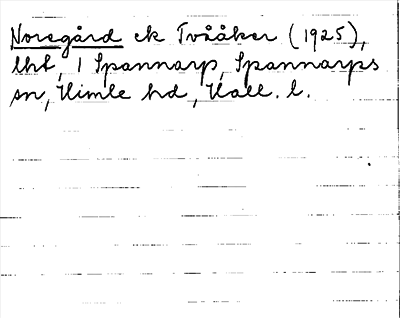 Noregård ek Tvååker (1925),
lht, 1 Spannarp, Spannarps
sn, Himle hd, Hall. l.